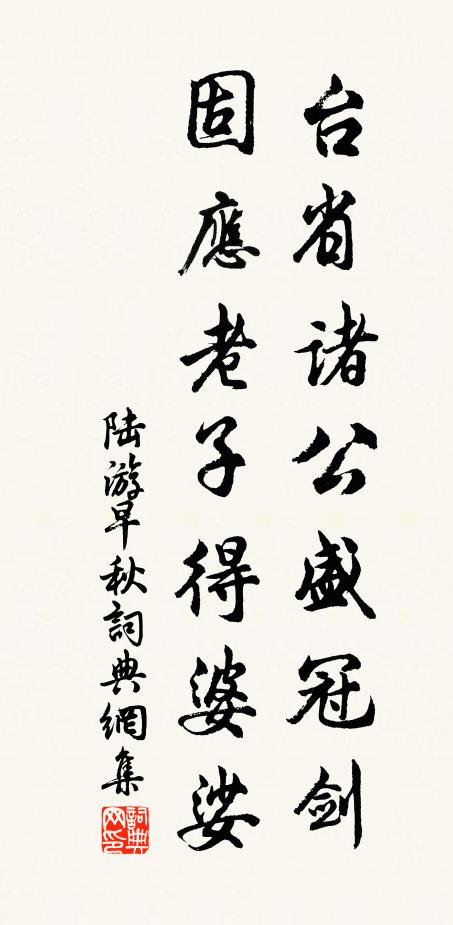 台省诸公盛冠剑
固應老子得婆娑
陆游早秋詞典網集
詞典网印